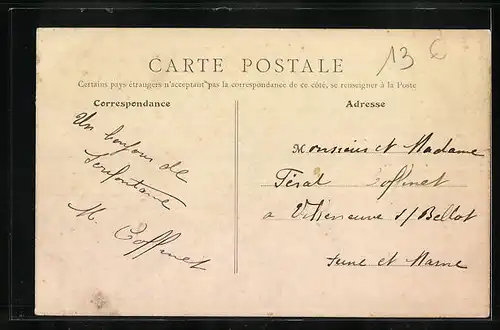 13 €
CARTE POSTALE
Certains pays étrangers n'acceptant pas la correspondance de ce côté, se renseigner à la Poste
Correspondance
Adresse
Un bonjour de
M. Coffinet
Monsieur et Madame
Féral Coffinet
a Villeneuve s/ Bellot
Seine et Marne